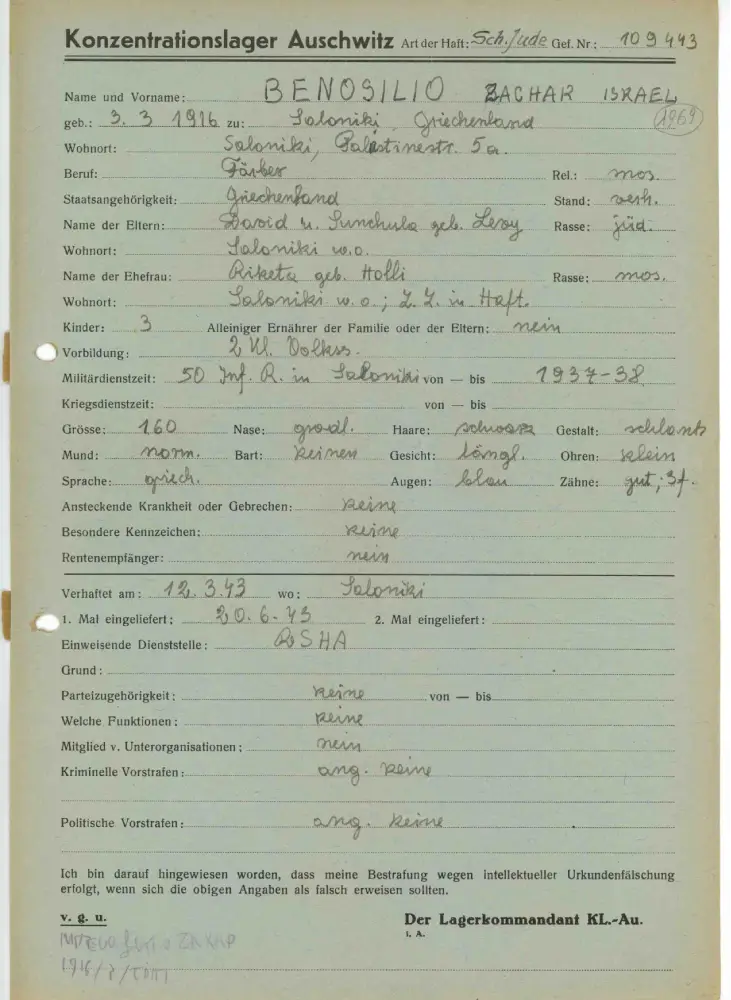 Konzentrationslager Auschwitz Art der Haft: Sch. Jude Gef. Nr.: 109443
Name und Vorname: BENOSILIO ZACHAR ISRAEL
geb.: 3. 3 1916 zu: Saloniki, Griechenland (1969)
Wohnort: Saloniki, Palästinestr. 5a.
Beruf: Färber Rel.: mos.
Staatsangehörigkeit: Griechenland Stand: verh.
Name der Eltern: David u. Sunchula geb. Levy Rasse: jüd.
Wohnort: Saloniki w.o.
Name der Ehefrau: Riketa geb. Holli Rasse: mos.
Wohnort: Saloniki w. o.; z. Z. in Haft.
Kinder: 3 Alleiniger Ernährer der Familie oder der Eltern: nein
Vorbildung: 2 Kl. Volkss.
Militärdienstzeit: 50 Inf. R. in Saloniki von — bis 1937-38
Kriegsdienstzeit: von — bis
Grösse: 160 Nase: gradl. Haare: schwarz Gestalt: schlank
Mund: norm. Bart: keinen Gesicht: längl. Ohren: klein
Sprache: griech. Augen: blau Zähne: gut; 3f.
Ansteckende Krankheit oder Gebrechen: keine
Besondere Kennzeichen: keine
Rentenempfänger: nein
Verhaftet am: 12. 3. 43 wo: Saloniki
1. Mal eingeliefert: 20. 6. 43 2. Mal eingeliefert:
Einweisende Dienststelle: RSHA
Grund:
Parteizugehörigkeit: keine von — bis
Welche Funktionen: keine
Mitglied v. Unterorganisationen: nein
Kriminelle Vorstrafen: ang. keine
Politische Vorstrafen: ang. keine
Ich bin darauf hingewiesen worden, dass meine Bestrafung wegen intellektueller Urkundenfälschung
erfolgt, wenn sich die obigen Angaben als falsch erweisen sollten.
v. g. u. Der Lagerkommandant KL.-Au.
i. A.